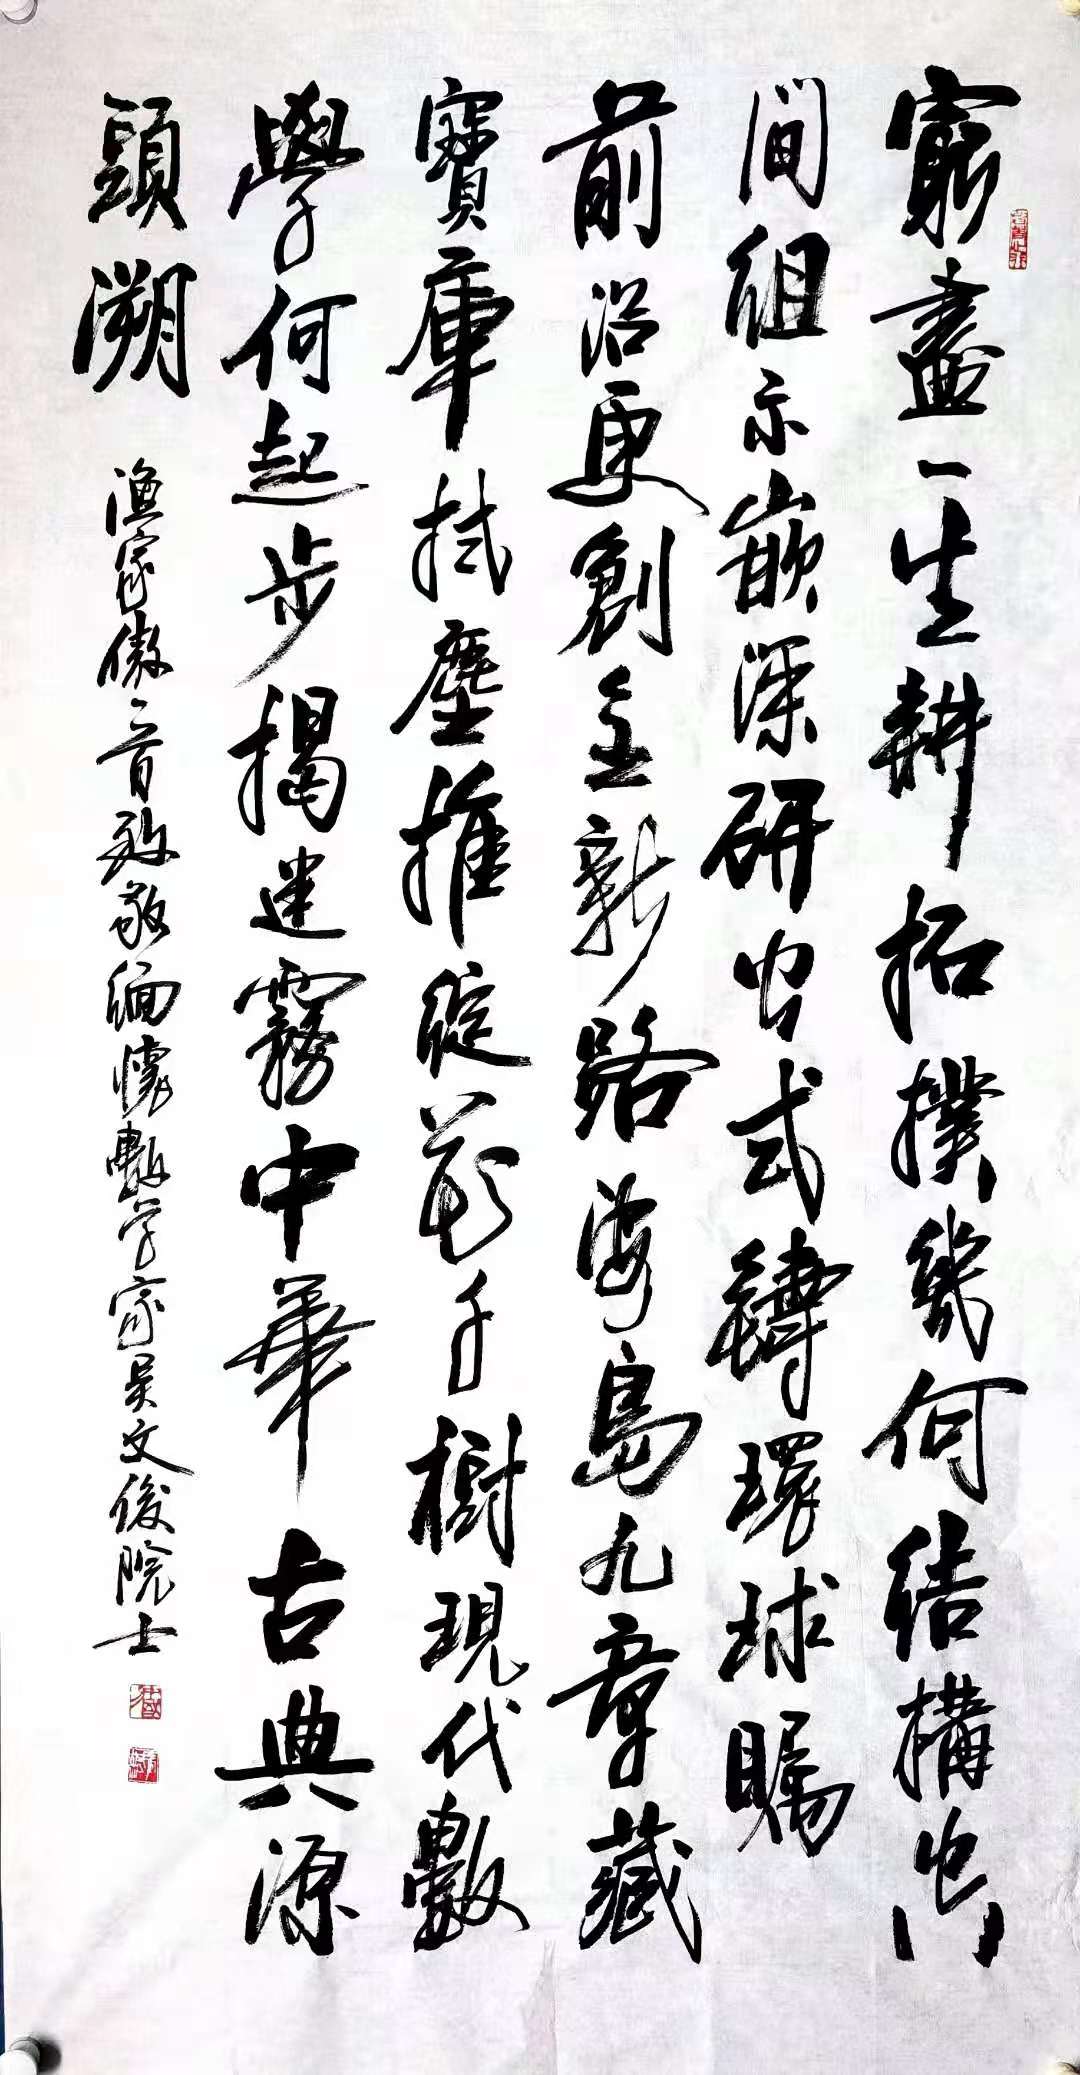 窮盡一生耕拓撲幾何結構空
间組示嵌深研公式鑄環球瞩
前沿更創全新路海島九章藏
寶庫拭塵推綻花千樹現代數
學何起步揭迷霧中華古典源
頭溯
漁家傲一首致敬緬懷數学家吴文俊院士